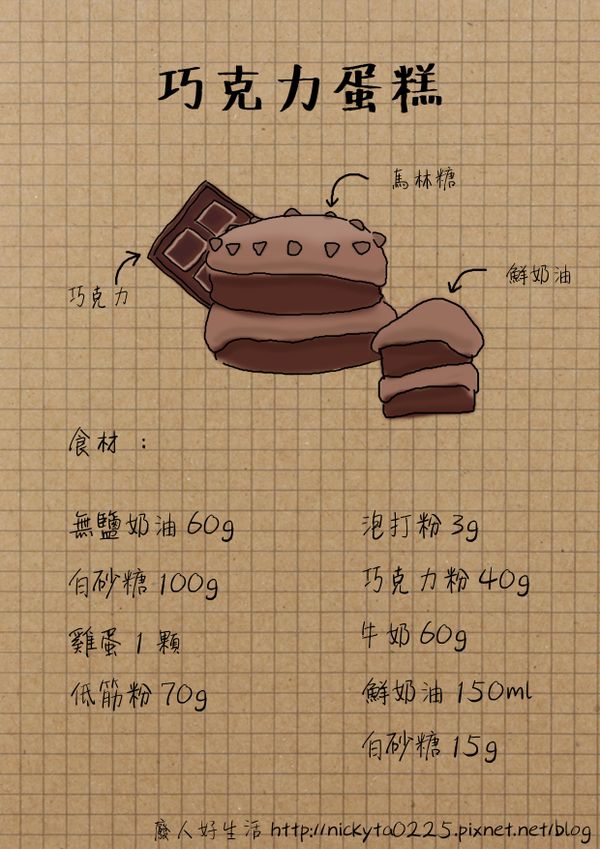 巧克力蛋糕
馬林糖
鮮奶油
巧克力
食材：
無鹽奶油 60g
白砂糖 100g
雞蛋 1 顆
低筋粉 70g
泡打粉 3g
巧克力粉 40g
牛奶 60g
鮮奶油 150ml
白砂糖 15g
廢人好生活 http://nickyta0225.pixnet.net/blog